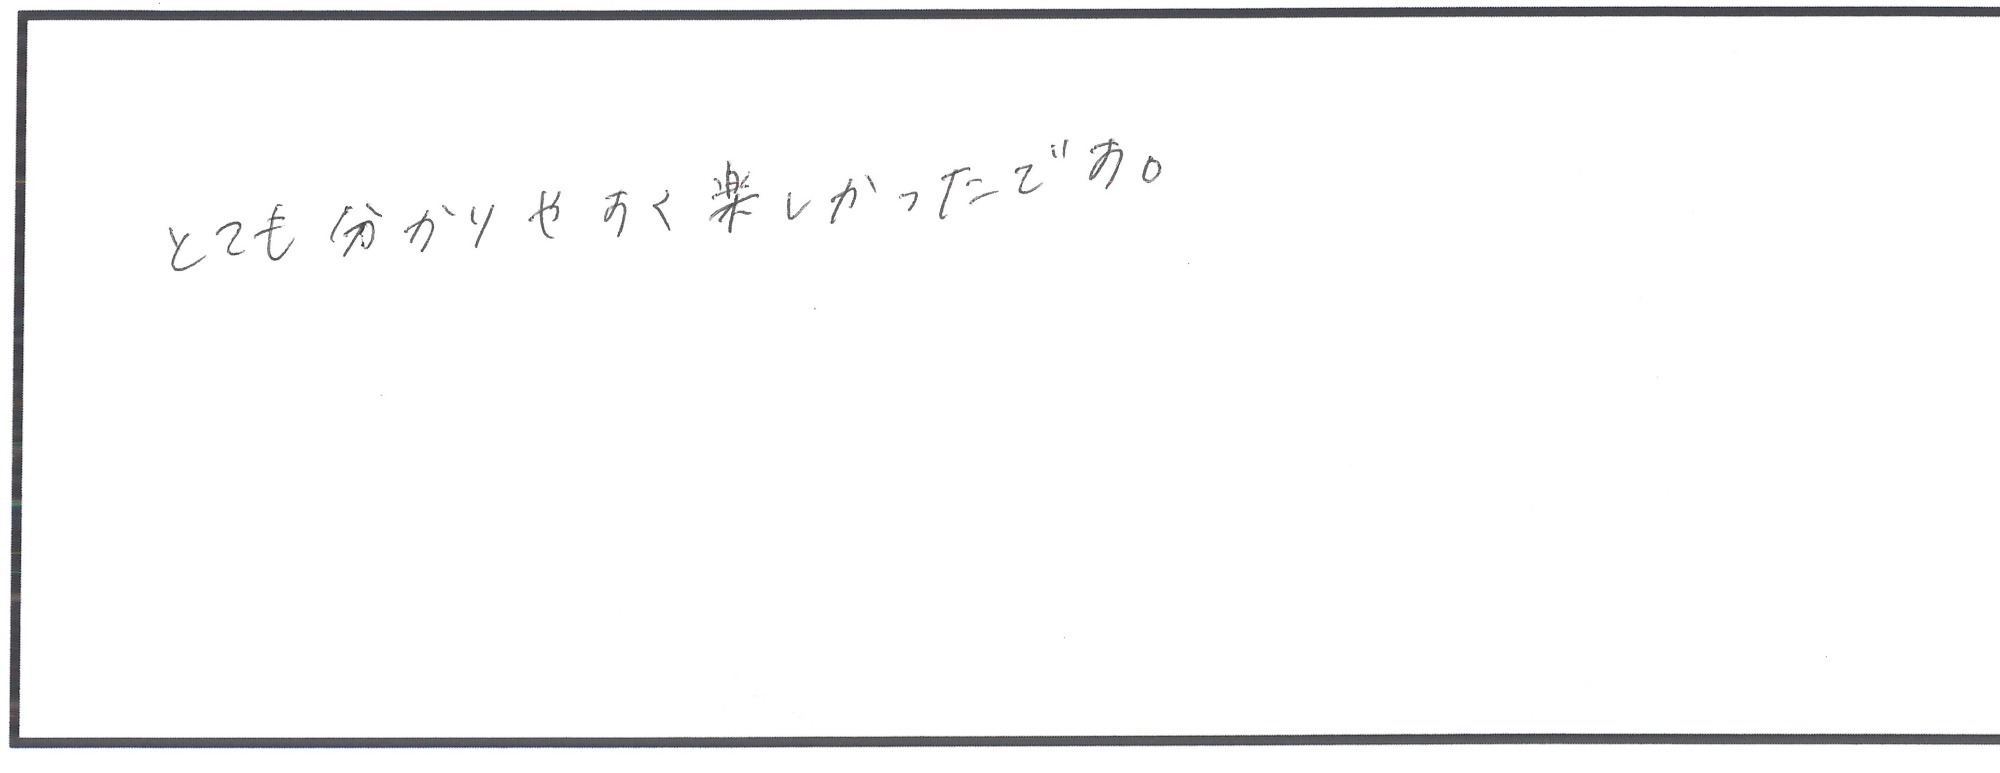 とても分かりやすく楽しかったです。